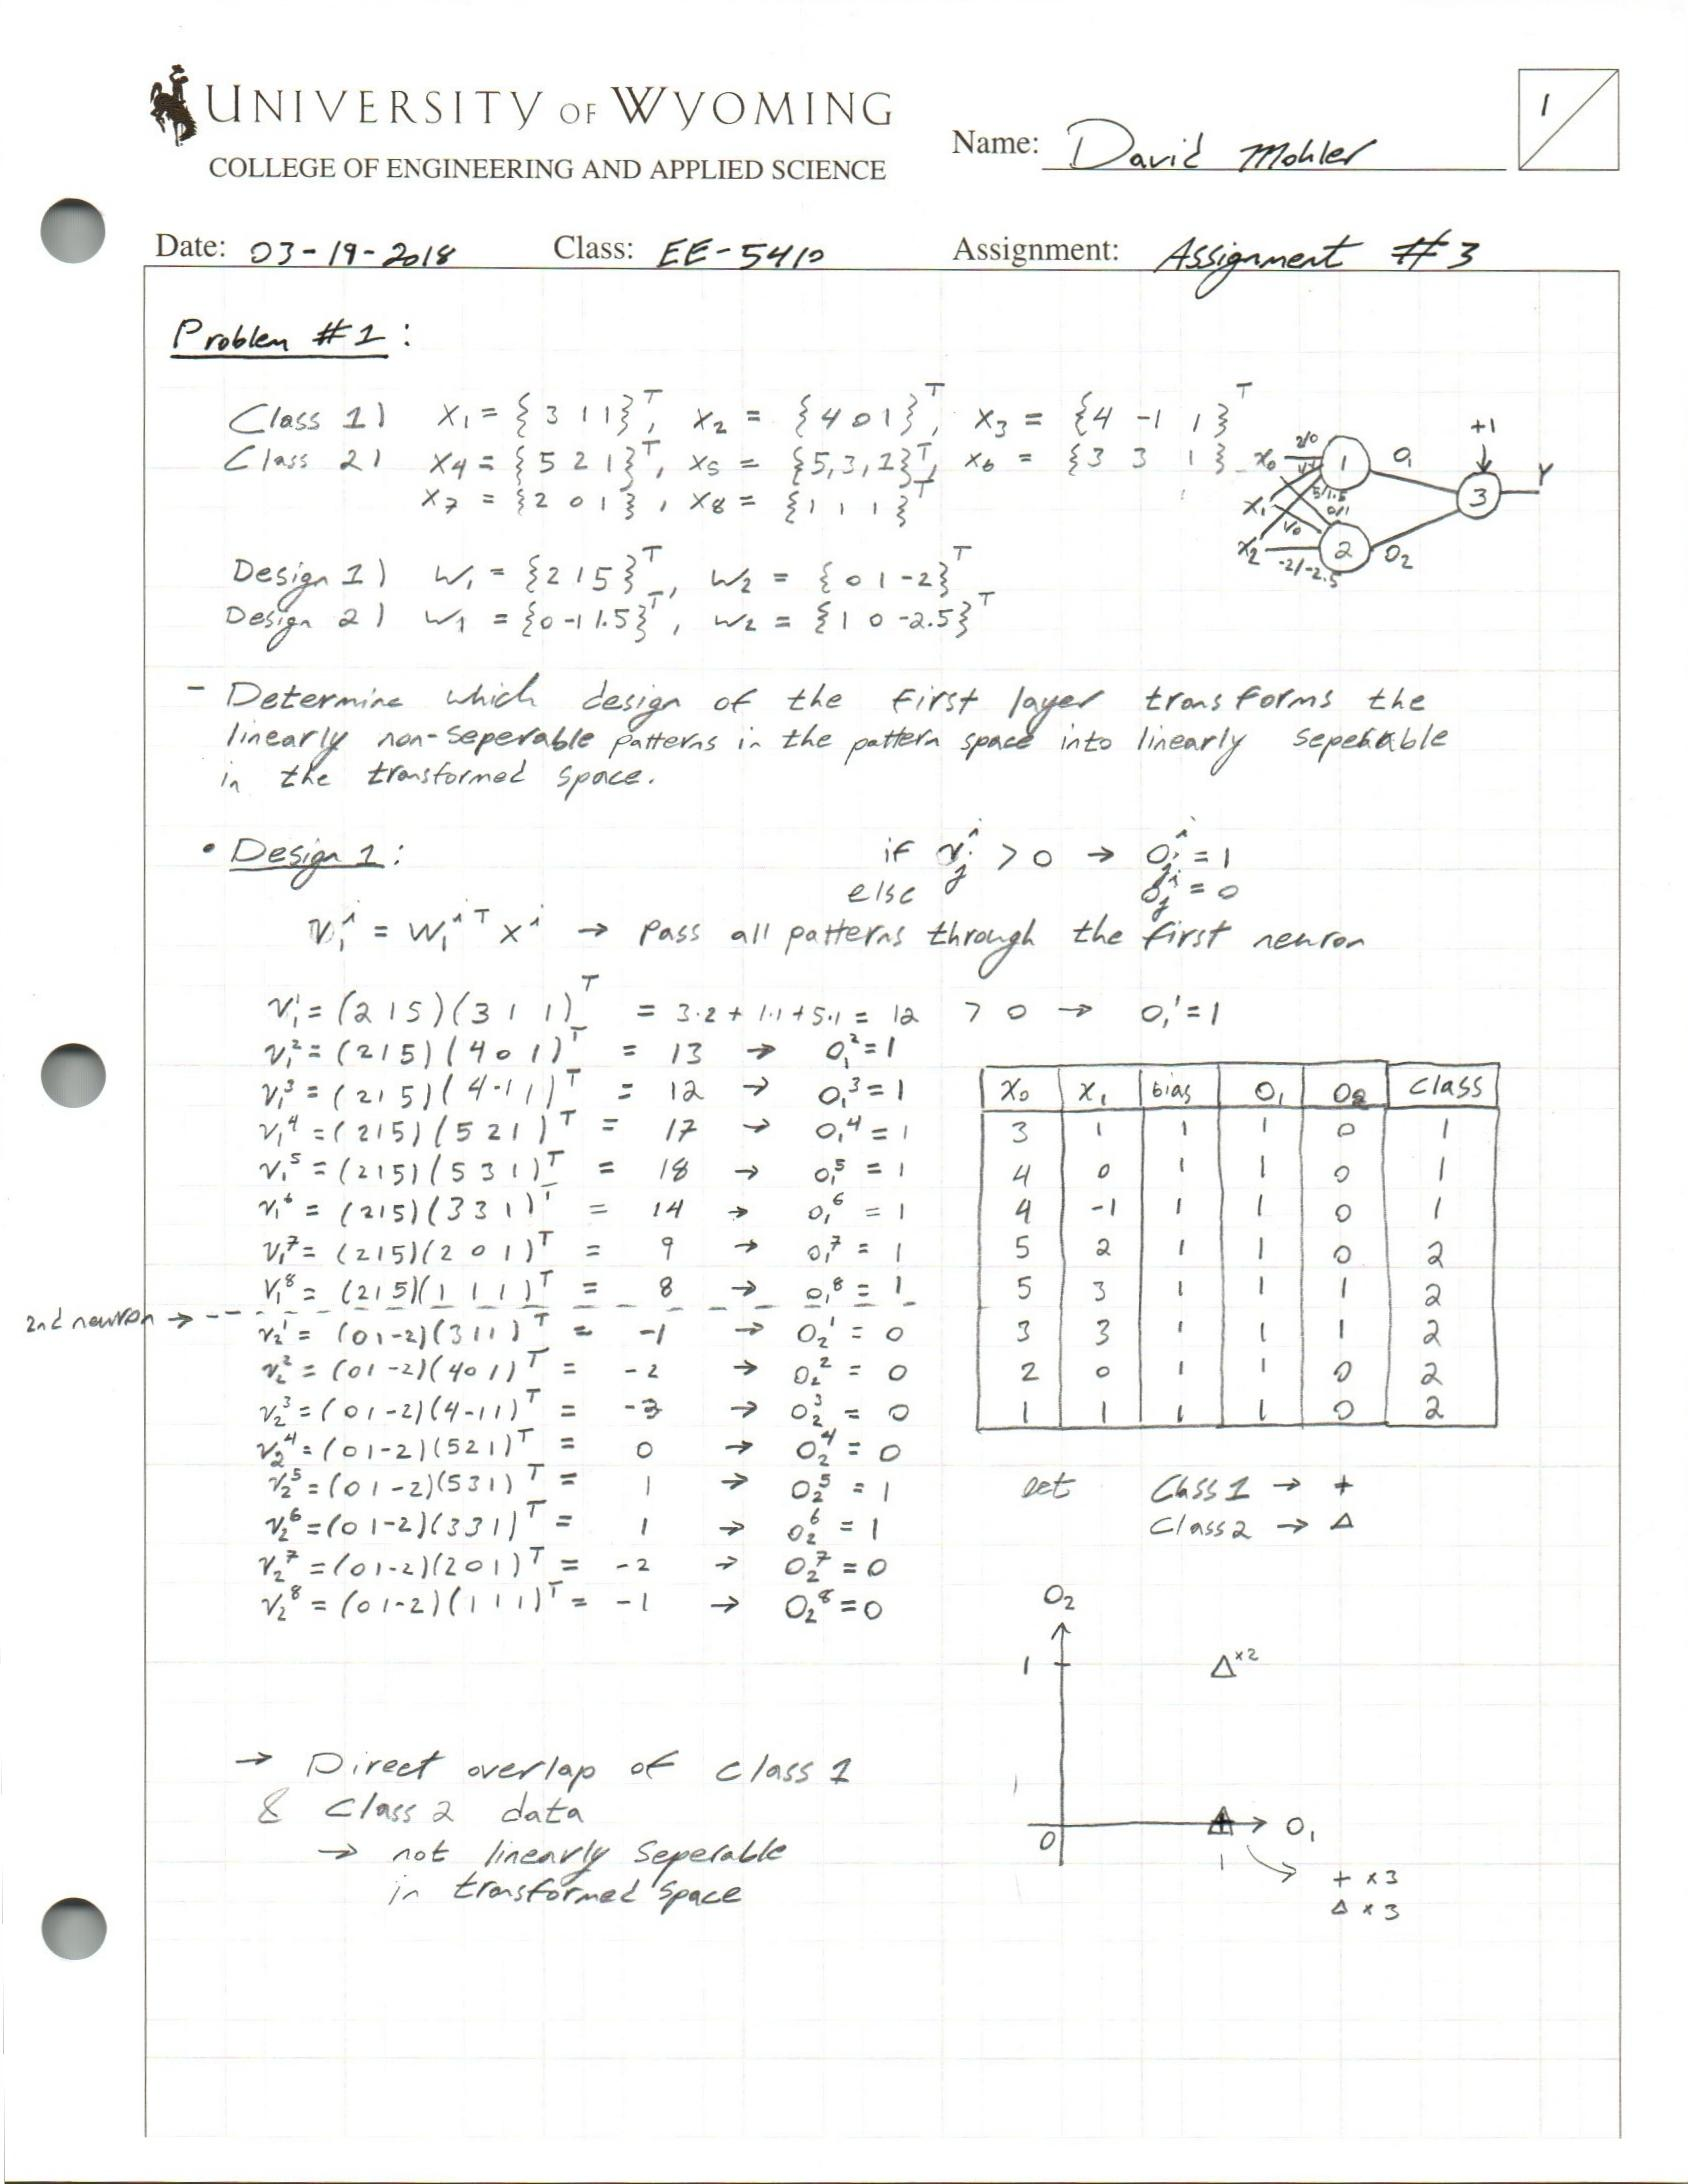 UNIVERSITY OF WYOMING
COLLEGE OF ENGINEERING AND APPLIED SCIENCE
Name: David Mohler
1
Date: 03-19-2018 Class: EE-5410 Assignment: Assignment #3
Problem #1:
Class 1) X₁ = {3 1 1}ᵀ, X₂ = {4 0 1}ᵀ, X₃ = {4 -1 1}ᵀ
Class 2) X₄ = {5 2 1}ᵀ, X₅ = {5,3,1}ᵀ, X₆ = {3 3 1}
X₇ = {2 0 1}, X₈ = {1 1 1}ᵀ
+1
X₀ 2/0 1 O₁ Y
5/1.5 3
X₁ 0/1
1/0
X₂ 2 O₂
-2/-2.5
Design 1) W₁ = {2 1 5}ᵀ, W₂ = {0 1 -2}ᵀ
Design 2) W₁ = {0 -1 1.5}ᵀ, W₂ = {1 0 -2.5}ᵀ
- Determine which design of the first layer transforms the
linearly non-seperable patterns in the pattern space into linearly seperable
in the transformed space.
• Design 1:
if vⱼⁱ > 0 → Oⱼⁱ = 1
else Oⱼⁱ = 0
v₁ⁱ = W₁ⁱᵀ Xⁱ → Pass all patterns through the first neuron
v₁¹ = (2 1 5)(3 1 1)ᵀ = 3·2 + 1·1 + 5·1 = 12 > 0 → O₁¹ = 1
v₁² = (2 1 5)(4 0 1)ᵀ = 13 → O₁² = 1
v₁³ = (2 1 5)(4 -1 1)ᵀ = 12 → O₁³ = 1
v₁⁴ = (2 1 5)(5 2 1)ᵀ = 17 → O₁⁴ = 1
v₁⁵ = (2 1 5)(5 3 1)ᵀ = 18 → O₁⁵ = 1
v₁⁶ = (2 1 5)(3 3 1)ᵀ = 14 → O₁⁶ = 1
v₁⁷ = (2 1 5)(2 0 1)ᵀ = 9 → O₁⁷ = 1
v₁⁸ = (2 1 5)(1 1 1)ᵀ = 8 → O₁⁸ = 1
2nd neuron →
v₂¹ = (0 1 -2)(3 1 1)ᵀ = -1 → O₂¹ = 0
v₂² = (0 1 -2)(4 0 1)ᵀ = -2 → O₂² = 0
v₂³ = (0 1 -2)(4 -1 1)ᵀ = -3 → O₂³ = 0
v₂⁴ = (0 1 -2)(5 2 1)ᵀ = 0 → O₂⁴ = 0
v₂⁵ = (0 1 -2)(5 3 1)ᵀ = 1 → O₂⁵ = 1
v₂⁶ = (0 1 -2)(3 3 1)ᵀ = 1 → O₂⁶ = 1
v₂⁷ = (0 1 -2)(2 0 1)ᵀ = -2 → O₂⁷ = 0
v₂⁸ = (0 1 -2)(1 1 1)ᵀ = -1 → O₂⁸ = 0
X₀ X₁ bias O₁ O₂ class
3 1 1 1 0 1
4 0 1 1 0 1
4 -1 1 1 0 1
5 2 1 1 0 2
5 3 1 1 1 2
3 3 1 1 1 2
2 0 1 1 0 2
1 1 1 1 0 2
let Class 1 → +
Class 2 → Δ
O₂
1 Δ ×2
0 1 O₁
+ ×3
Δ ×3
→ Direct overlap of class 1
& Class 2 data
→ not linearly seperable
in transformed space